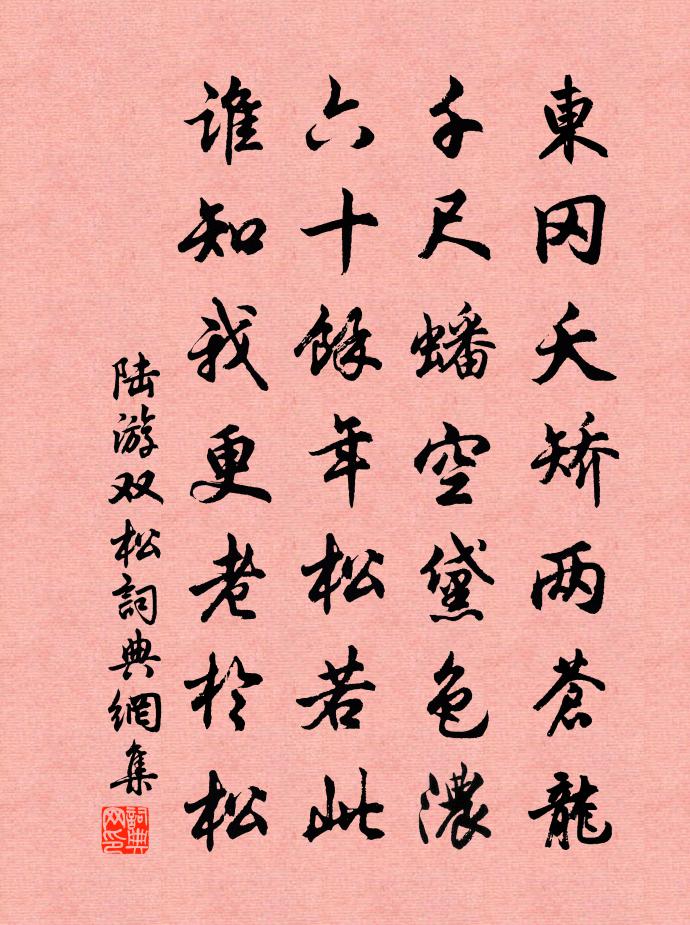 東冈夭矫两蒼龍
千尺蟠空黛色濃
六十餘年松若此
谁知我更老於松
陆游双松詞典網集
詞典
网印